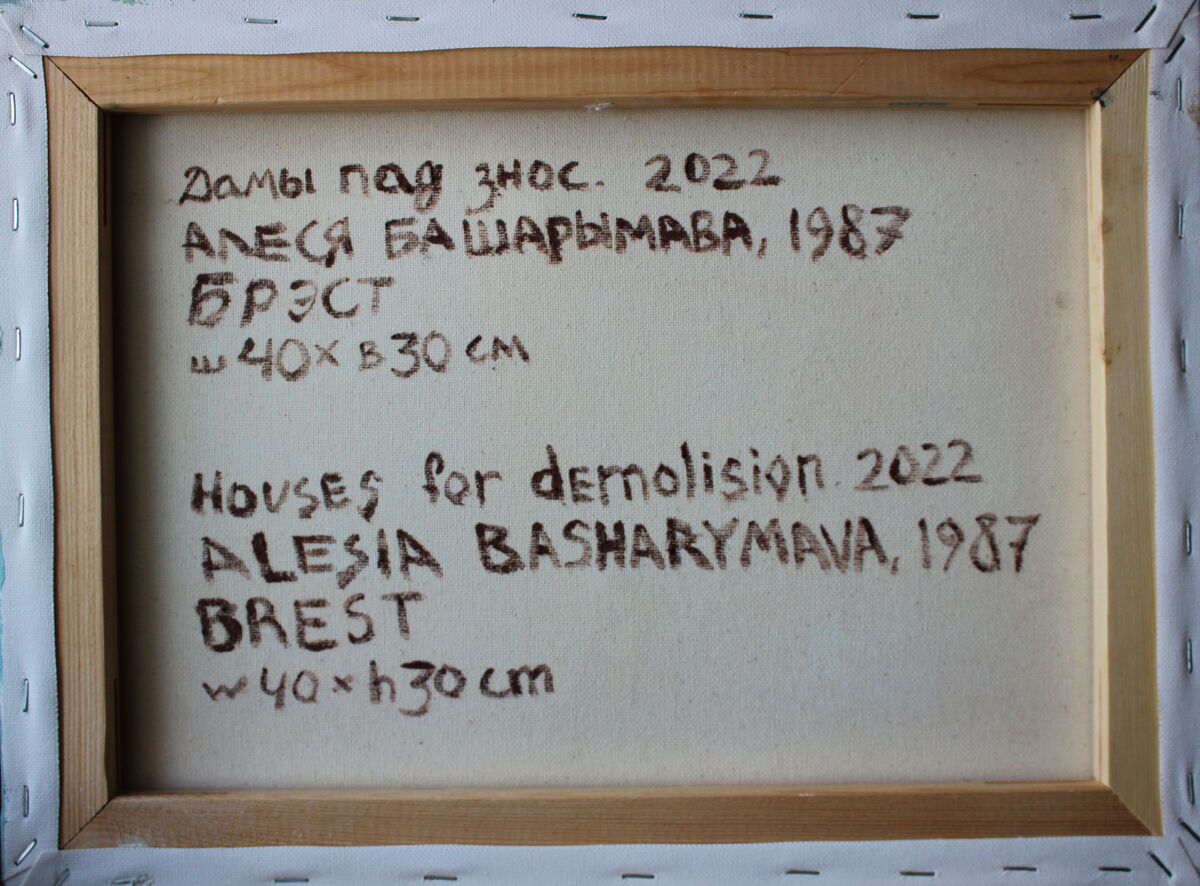 Дамы пад знос. 2022
АЛЕСЯ БАШАРЫМАВА, 1987
БРЭСТ
ш 40 х в 30 см
HOUSES for dEmolision. 2022
ALESIA BASHARYMAVA, 1987
BREST
w 40 x h 30 cm